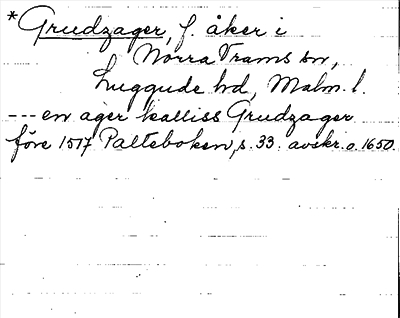 *Grudzager, f. åker i
Norra Trams sn,
Luggude hd, Malm. l.
--- en ager kalliss Grudzager
före 1517 Palteboken, s. 33. avskr. o. 1650.